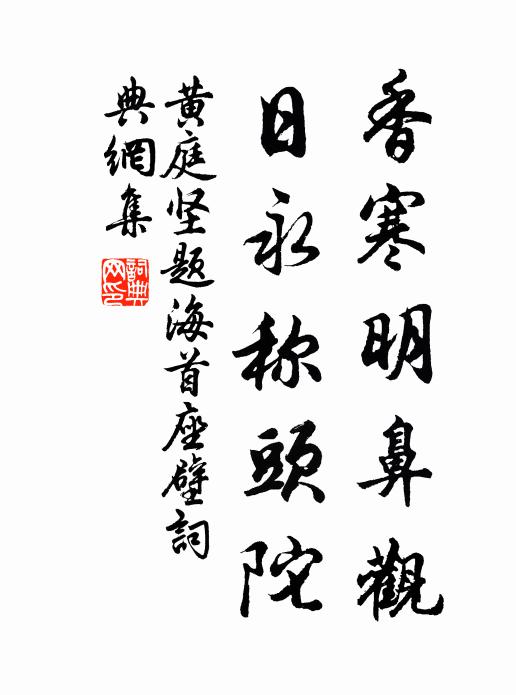 香寒明鼻觀
日永称頭陀
黄庭坚题海首座壁詞
典網集
詞典
网印